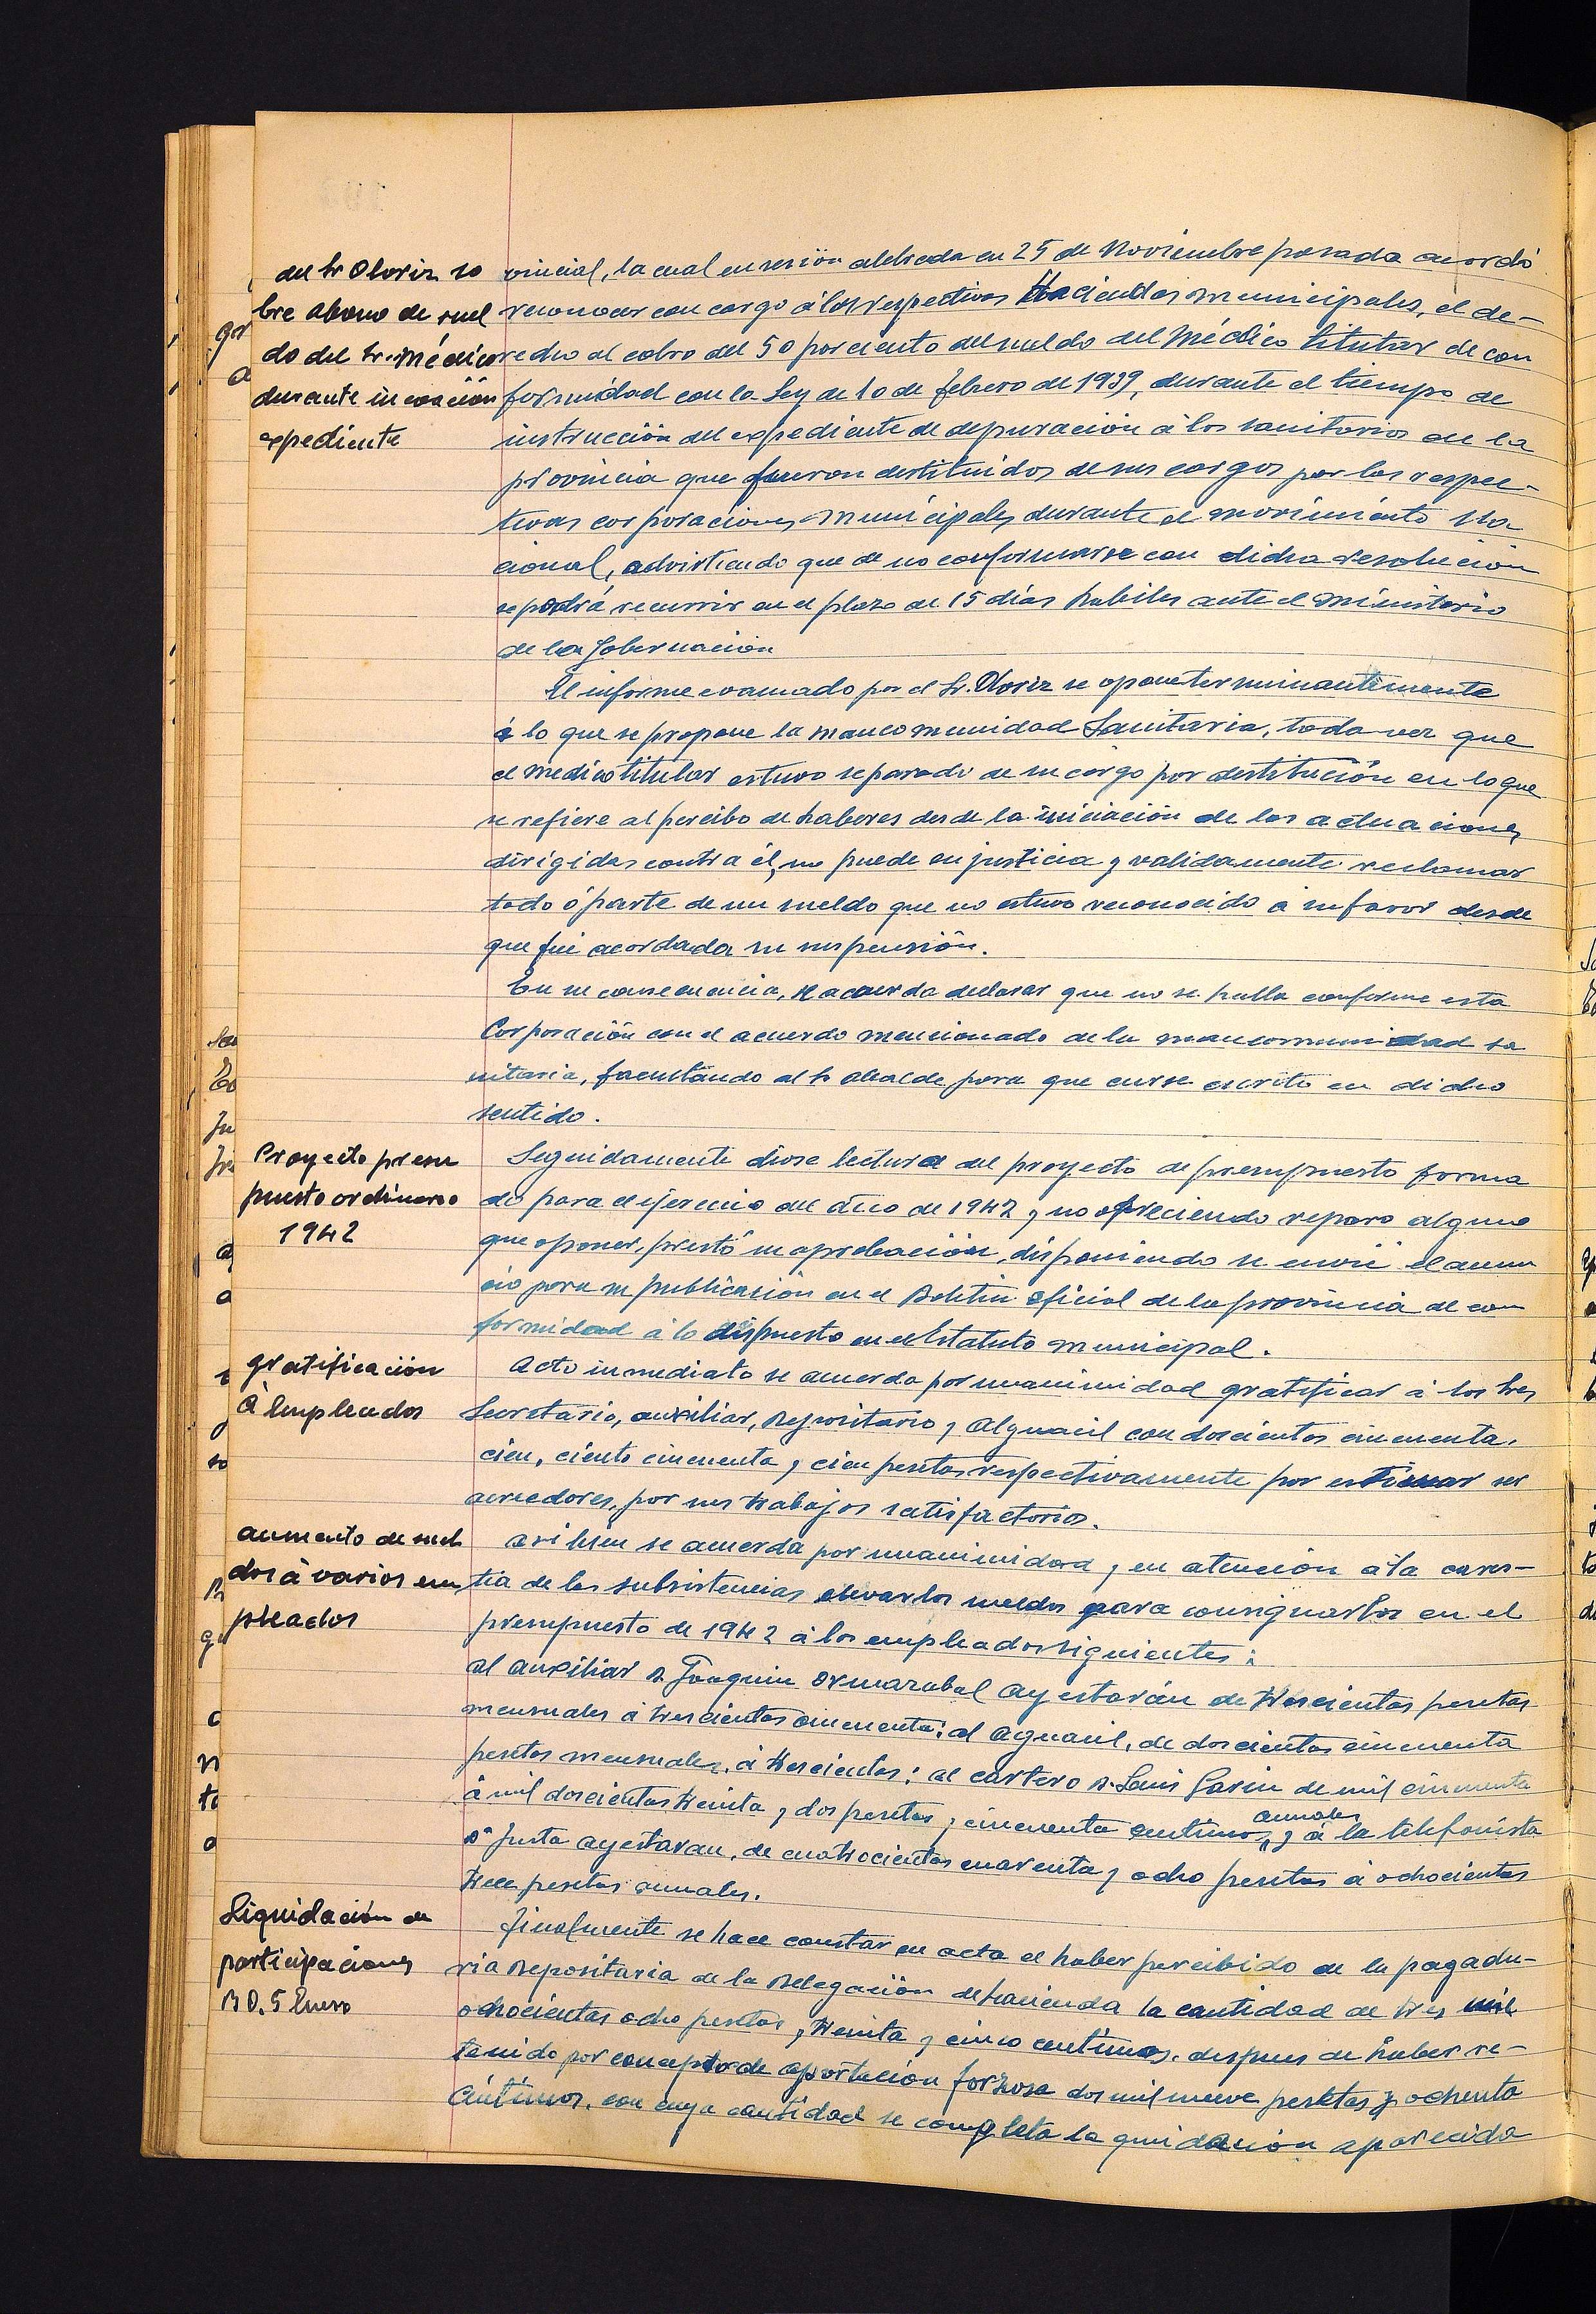 del Sr Oloriz so
bre abono de suel
do del Sr. Médico
durante incoación
expediente
vincial, la cual en sesión celebrada en 25 de Noviembre pasado acordó
reconocer con cargo á las respectivas Haciendas municipales, el de-
recho al cobro del 50 por ciento del sueldo del Médico titular de con
formidad con la Ley de 10 de febrero de 1939, durante el tiempo de
instrucción del expediente de depuración á los sanitarios de la
provincia que fueron destituidos de sus cargos por las respec-
tivas corporaciones municipales durante el movimiento Na
cional, advirtiendo que de no conformarse con dicha resolución
se podrá recurrir en el plazo de 15 días habiles ante el ministerio
de la Gobernación
El informe evacuado por el Sr. Oloriz se opone terminantemente
á lo que se propone la mancomunidad Sanitaria, toda vez que
el medico titular estuvo separado de su cargo por destitución en lo que
se refiere al percibo de haberes desde la iniciación de las actuaciones
dirigidas contra él, no puede en justicia y validamente reclamar
todo ó parte de un sueldo que no estuvo reconocido á su favor desde
que fué acordada su suspensión.
En su consecuencia, se acuerda declarar que no se halla conforme esta
Corporación con el acuerdo mencionado de la mancomunidad sa
nitaria, facultando al Sr alcalde para que curse escrito en dicho
sentido.
Proyecto presu
puesto ordinario
1942
Seguidamente diose lectura del proyecto de presupuesto forma
do para el ejercicio del año de 1942 y no ofreciendo reparo alguno
que oponer, prestó su aprobación, disponiendo se envie el anun
cio para su publicación en el Boletin oficial de la provincia de con
formidad á lo dispuesto en el Estatuto municipal.
gratificación
á empleados
Acto inmediato se acuerda por unanimidad gratificar á los Sres
Secretario, auxiliar, Depositario y Alguacil con doscientas cincuenta,
cien, ciento cincuenta y cien pesetas respectivamente por estimar ser
acreedores, por sus trabajos satisfactorios.
aumento de suel
dos á varios em
pleados
asi bien se acuerda por unanimidad y en atención á la cares-
tia de las subsistencias elevar los sueldos para consignarlos en el
presupuesto de 1942 á los empleados siguientes:
al auxiliar D. Joaquin Ormazabal Ayestarán de trescientas pesetas
mensuales á trescientas cincuenta: al aguacil, de doscientas cincuenta
pesetas mensuales, á trescientas: al cartero D. Luis Garin de mil cincuenta
á mil doscientas treinta y dos pesetas y cincuenta centimos anuales y á la telefonista
Dª Justa ayestaran, de cuatrocientas cuarenta y ocho pesetas á ochocientas
trece pesetas anuales.
Liquidación de
participaciones
BO. 5 Enero
Finalmente se hace constar en acta el haber percibido de la pagadu-
ria Depositaria de la Delegación de hacienda la cantidad de tres mil
ochocientas ocho pesetas y treinta y cinco centimos, despues de haber re-
tenido por concepto de aportación forzosa dos mil nueve pesetas y ochenta
céntimos, con cuya cantidad se completa la quidacion aparecida